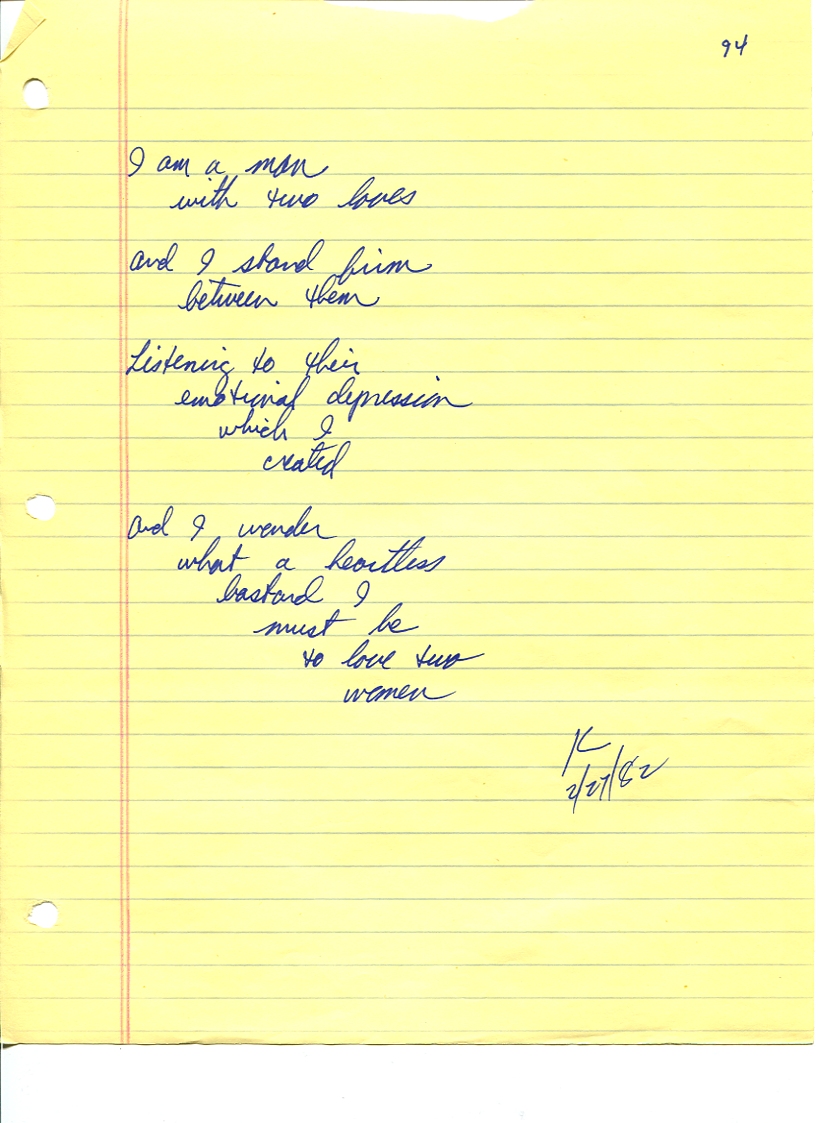 94
I am a man
with two loves
and I stand firm
between them
Listening to their
emotional depression
which I
created
and I wonder
what a heartless
bastard I
must be
to love two
women
K
2/27/82